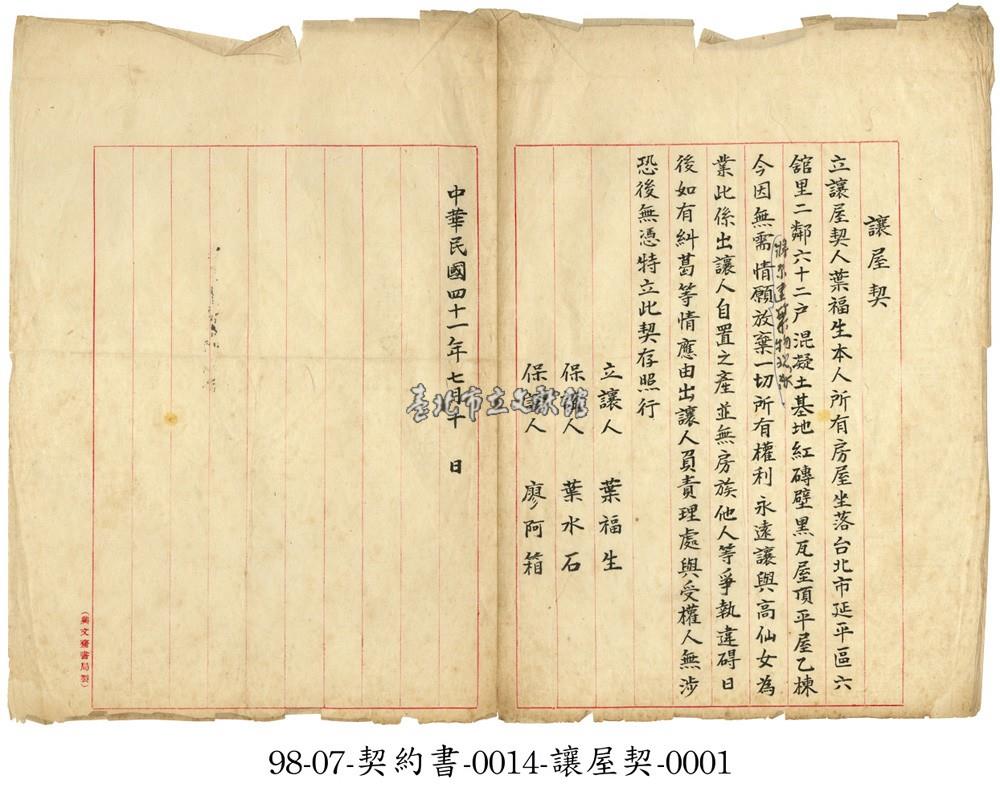 讓屋契
立讓屋契人葉福生本人所有房屋坐落台北市延平區六
舘里二鄰六十二戶混凝土基地紅磚壁黑瓦屋頂平屋乙棟
今因無需情願放棄一切所有權利永遠讓與高仙女為
業此係出讓人自置之產並無房族他人等爭執違碍日
後如有糾葛等情應由出讓人負責理處與受權人無涉
恐後無憑特立此契存照行
立讓人 葉福生
保 人 葉水石
保 人 廖阿箱
中華民國四十一年七月十 日
臺北市立文獻館
文齋書局製
98-07-契約書-0014-讓屋契-0001